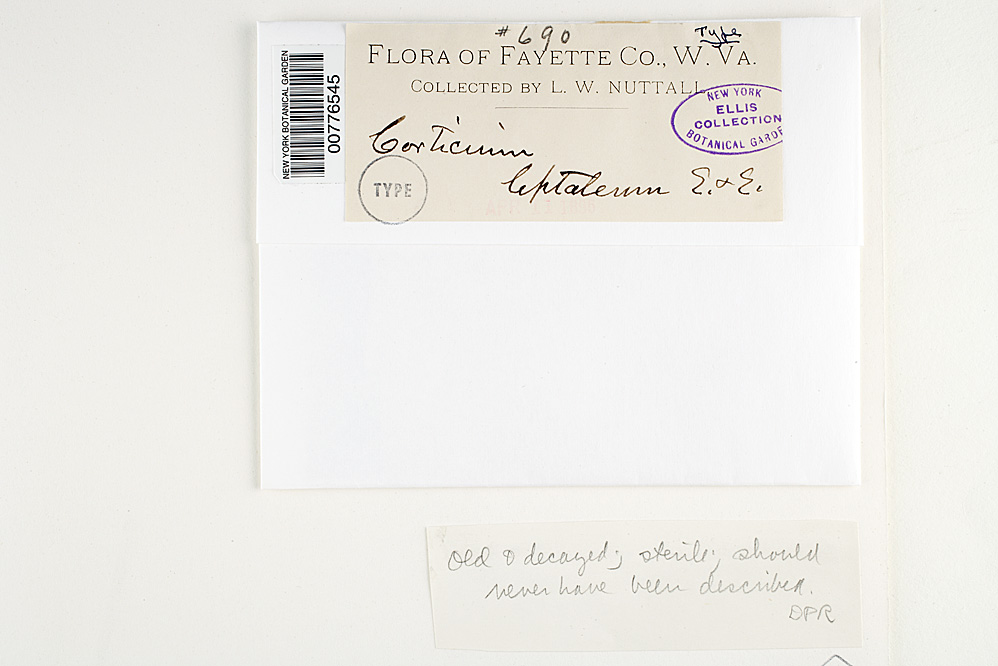 #690
Type
FLORA OF FAYETTE CO., W. VA.
COLLECTED BY L. W. NUTTALL
NEW YORK
ELLIS
COLLECTION
BOTANICAL GARDE
Corticium
leptaleum E. & E.
TYPE
NEW YORK BOTANICAL GARDEN
00776545
Old & decayed; sterile; should
never have been described.
DPR